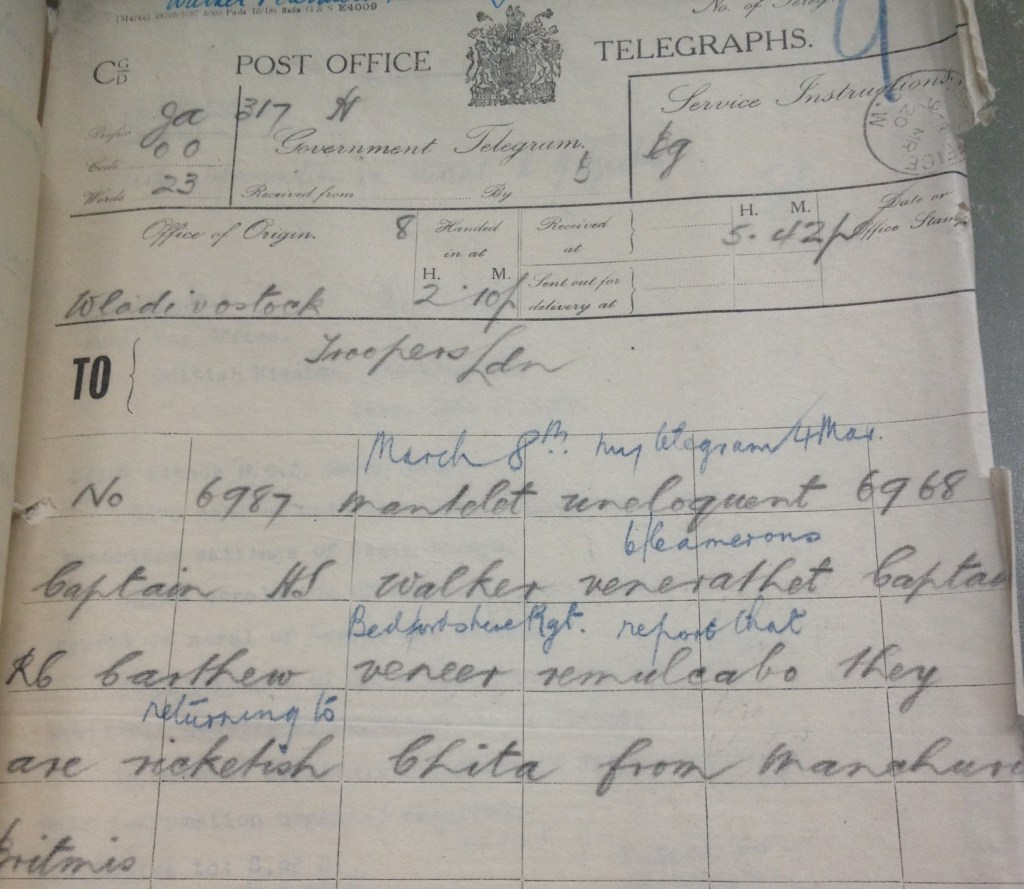 E4009
No. of Teleg
C G/D POST OFFICE TELEGRAPHS.
Prefix Ga 317 H Service Instructions.
Code 00 Government Telegram.
Words 23 Received from By
Office of Origin. 8 Handed in at Received at H. M. 5.42p Date or Office Stamp
H. M. Sent out for delivery at
Wladivostock 2.10p
TO Troopers Ldn
March 8th. my telegram 4 Mar.
No 6987 mantelet uneloquent 6968
Cameronns
Captain HS Walker venerathet Captai
Bedfordshire Rgt. report that
RG Carthew veneer remulcabo they
returning to
are ricketish Chita from Manchuri
Britmis